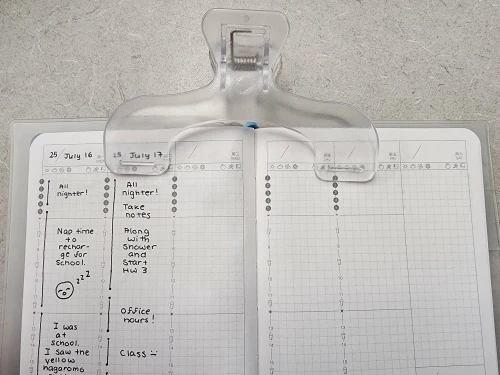 25 July 16
All
nighter!
Nap time
to
rechar-
ge for
School.
zzz
I was
at
school.
I saw the
yellow
nagaromo
25 July 17
All
nighter!
Take
notes
Along
with
Shower
and
Start
HW 3
Office
hours!
Class